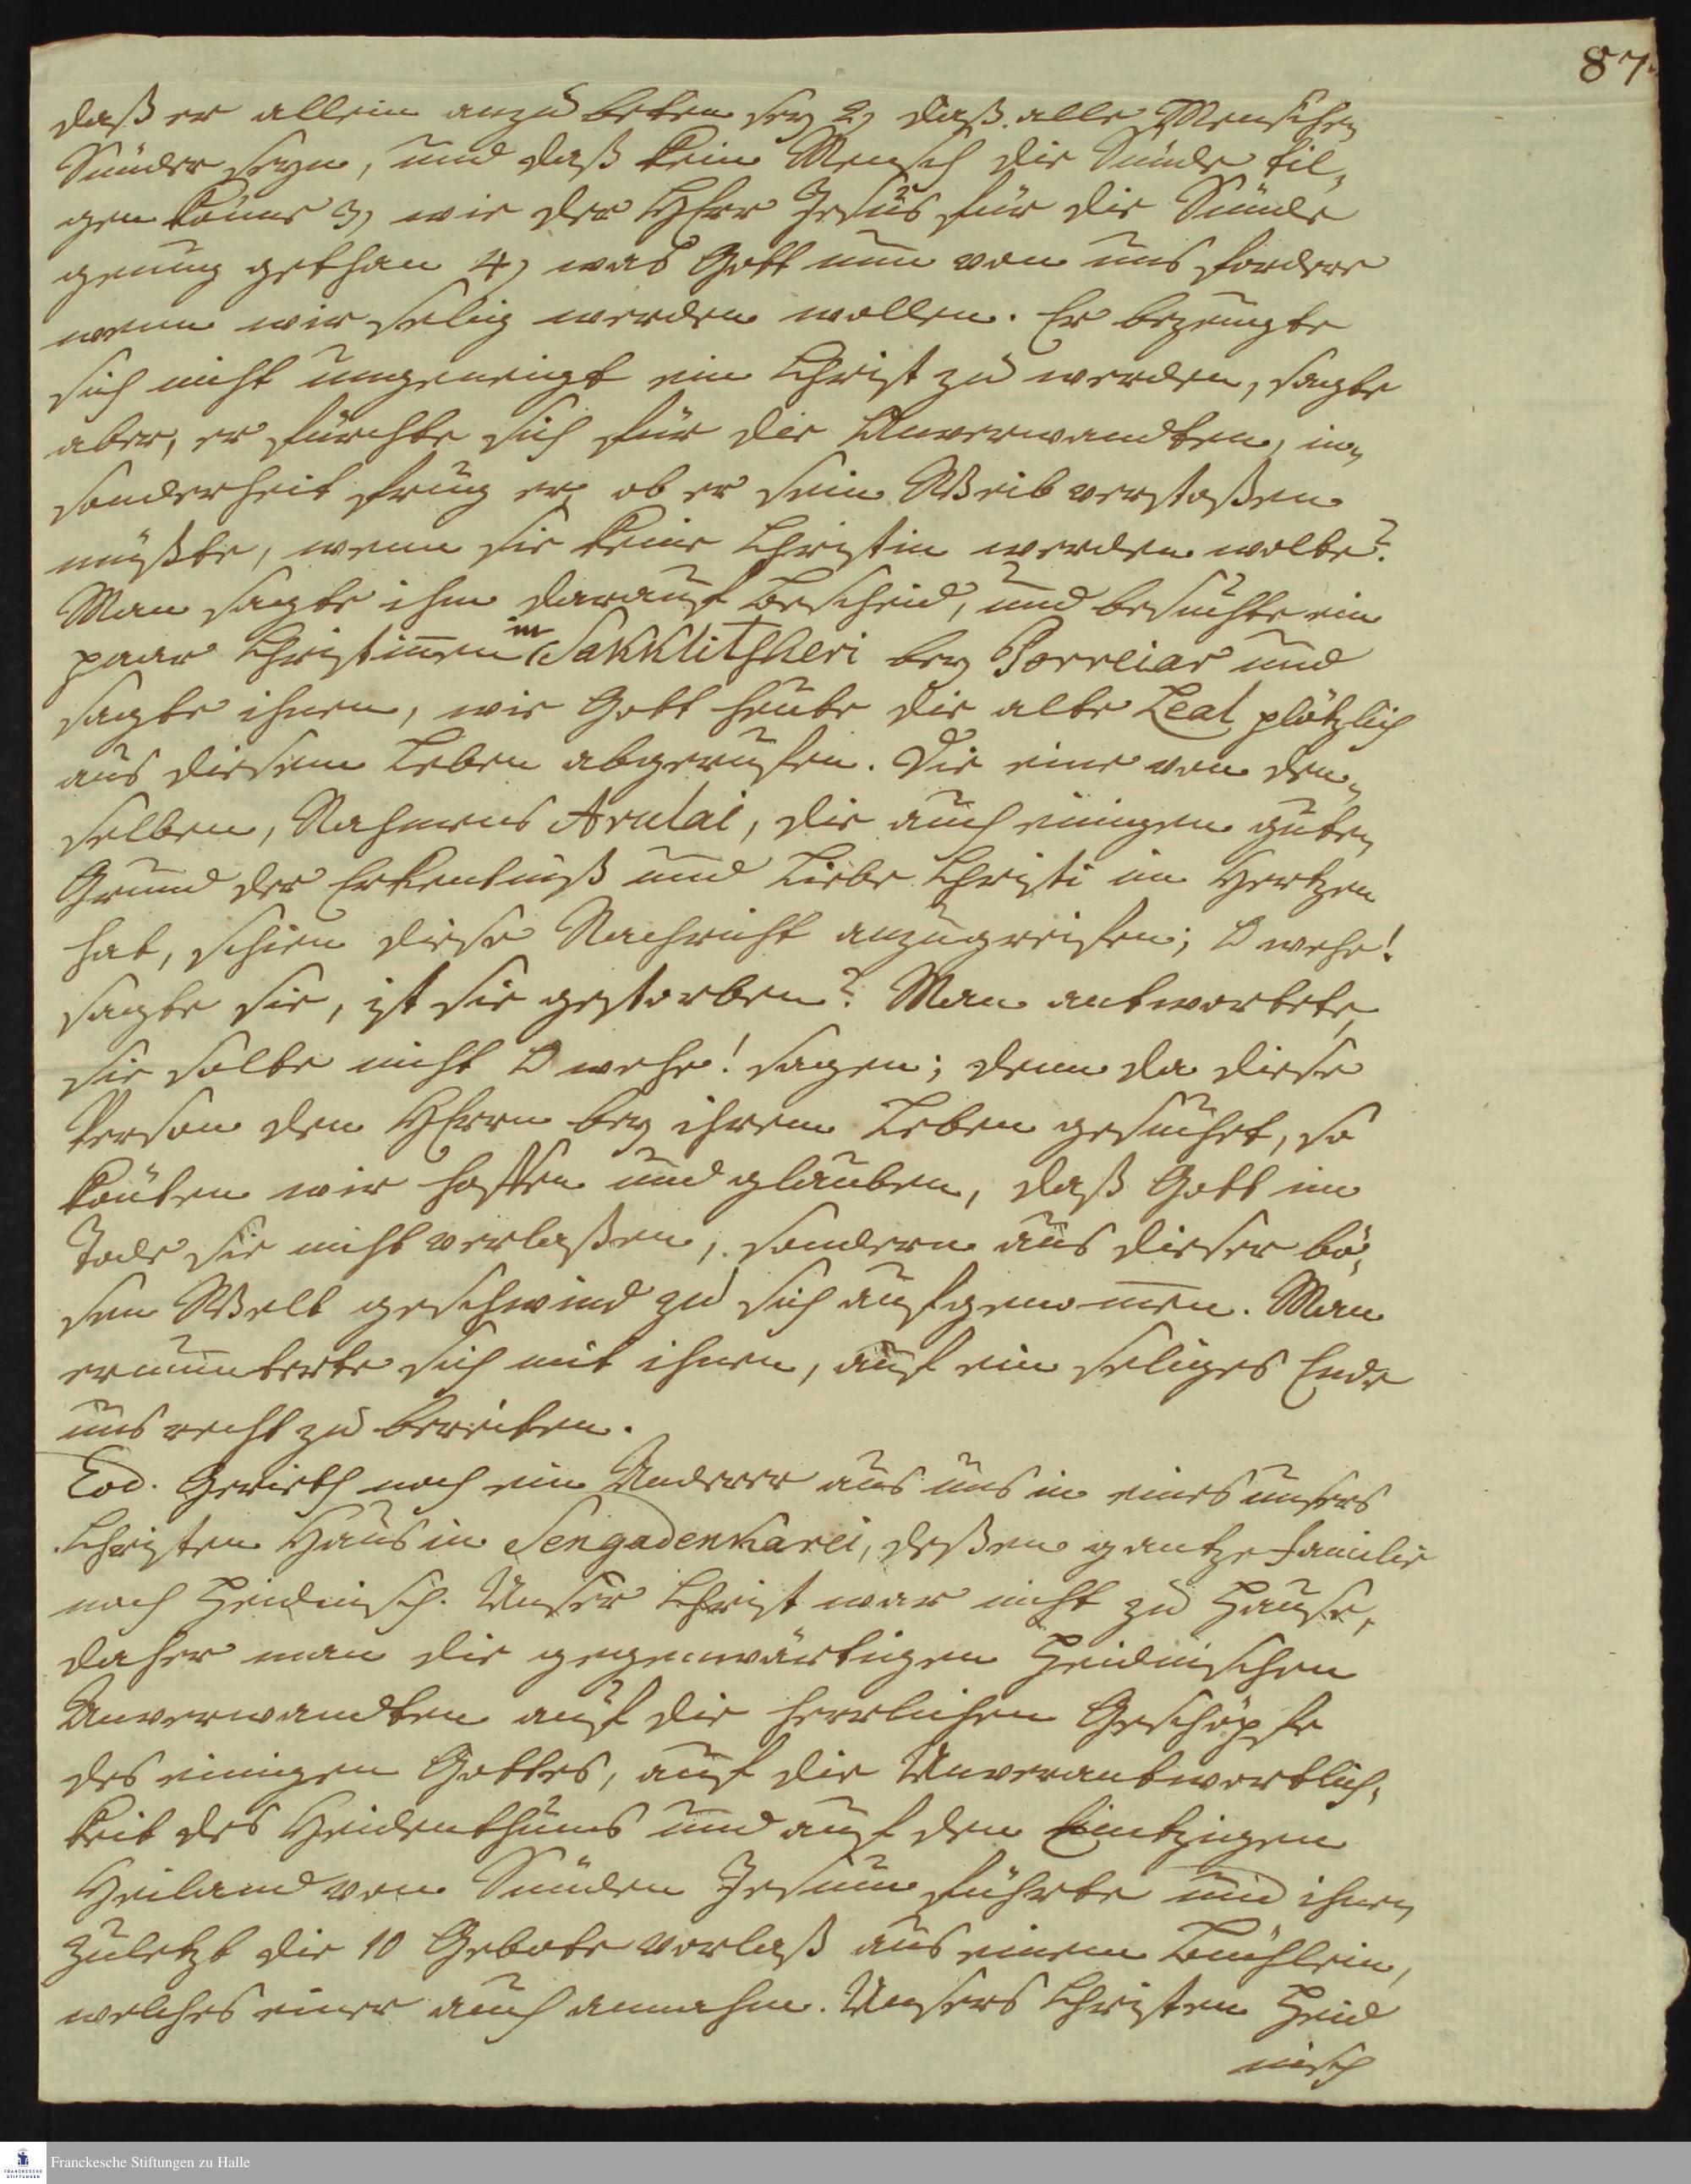 87.
daß er allein anzu beten sey 2) daß alle Menschen
Sünder seyn, und daß kein Mensch die Sünde til-
gen könne 3) wie der HErr Jesus für die Sünde
genung gethan 4) was Gott nun von uns fordere
wenn wir selig werden wollen. Er bezeugte
sich nicht ungeneigt ein Christ zu werden, sagte
aber, er fürchte sich für die Anverwandten, in-
sonderheit frug er, ob er sein Weib verstoßen
müßte, wenn sie keine Christin werden wolte?
Man sagte ihm darauf Bescheid, und besuchte ein
paar Christinnen in Sakklitscheri bey Porreiar und
sagte ihnen, wie Gott heute die alte Leal plötzlich
aus diesem Leben abgerufen. Die eine von den-
selben, Nahmens Arulai, die auch einigen guten
Grund der Erkentniß und Liebe Christi im Hertzen
hat, schien diese Nachricht anzugreifen; O wehe!
sagte sie, ist sie gestorben? Man antwortete,
sie solte nicht O wehe! sagen; denn da diese
Person den HErrn bey ihrem Leben gesuchet, so
könten wir hoffen und glauben, daß Gott im
Tode sie nicht verlaßen, sondern aus dieser bö-
sen Welt geschwind zu sich aufgenommen. Man
ermunterte sich mit ihnen, auf ein seliges Ende
uns recht zu bereiten.
Eod. Gerieth noch ein Anderer aus uns in eines unsers
Christen Haus in Sengadenkarei, deßen gantze Familie
noch Heidnisch. Unser Christ war nicht zu Hause,
daher man die gegenwärtigen Heidnischen
Anverwandten auf die herrlichen Geschöpfe
des einigen Gottes, auf die Unverantwortlich-
keit des Heidenthums und auf den Eintzigen
Heiland von Sünden Jesum führte und ihnen
zuletzt die 10 Gebote vorlaß aus einem Büchlein,
welches einer auch annahm. Unsers Christen Heid
nisch
Franckesche Stiftungen zu Halle